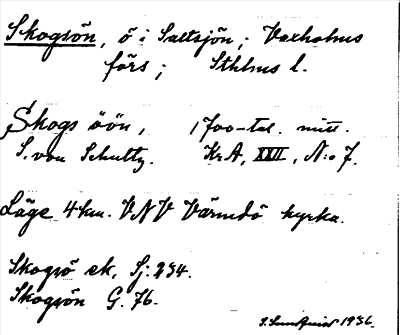 Skogsön, ö i Saltsjön; Vaxholms
förs; Sthlms l.
Skogs öön, 1700-tal. mitt.
S. von Schultz. Kr.A, XXII, N:o 7.
Läge 4 km. VNV Värmdö kyrka.
Skogsö ek. Sj. 234.
Skogsön G. 76.
1936.